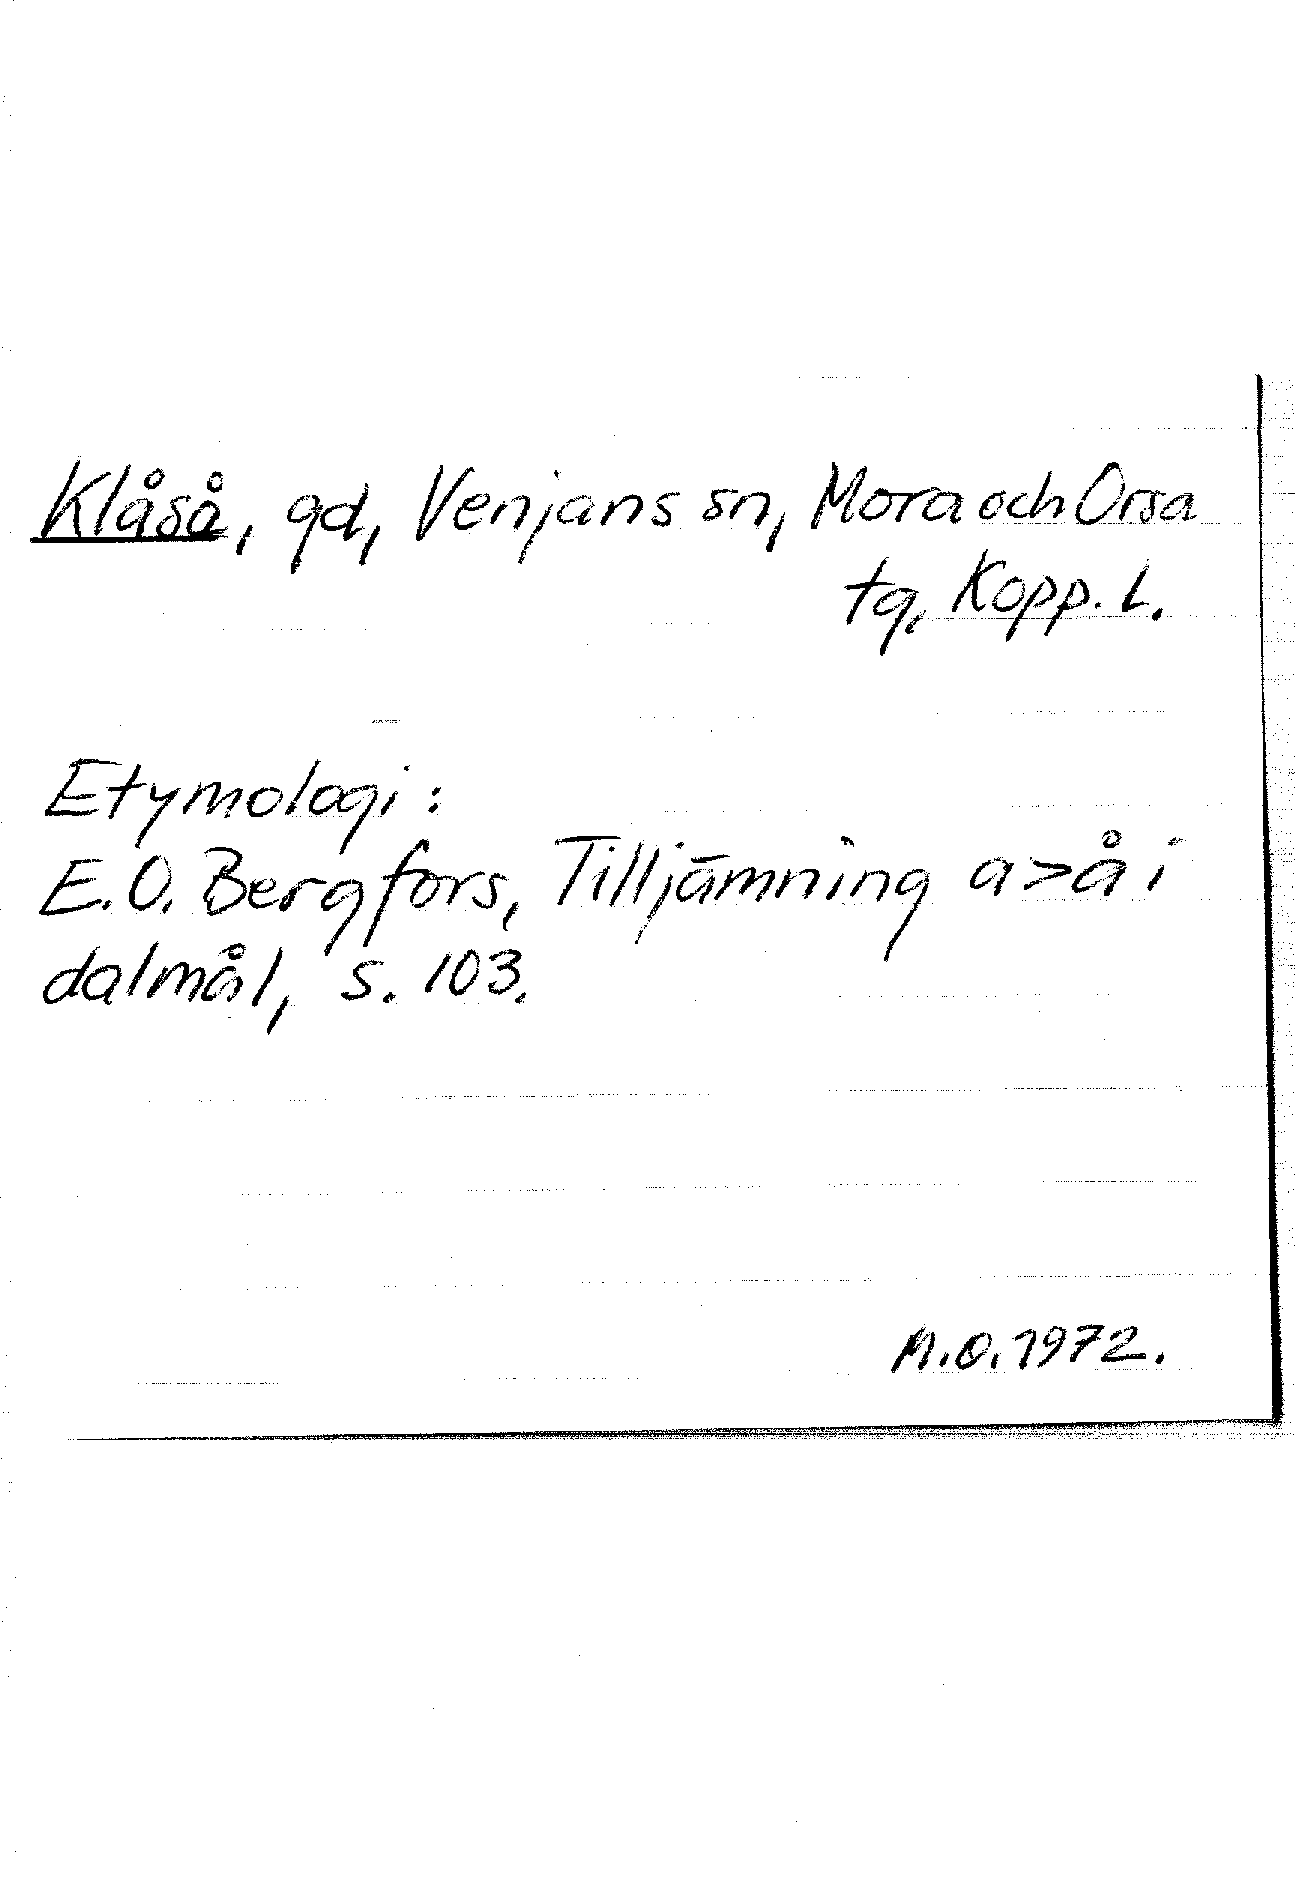 Klåså, gd, Venjans sn, Mora och Orsa
tg, Kopp. L.
Etymologi:
E.O. Bergfors, Tilljämning a>å i
dalmål, s. 103.
M.O. 1972.